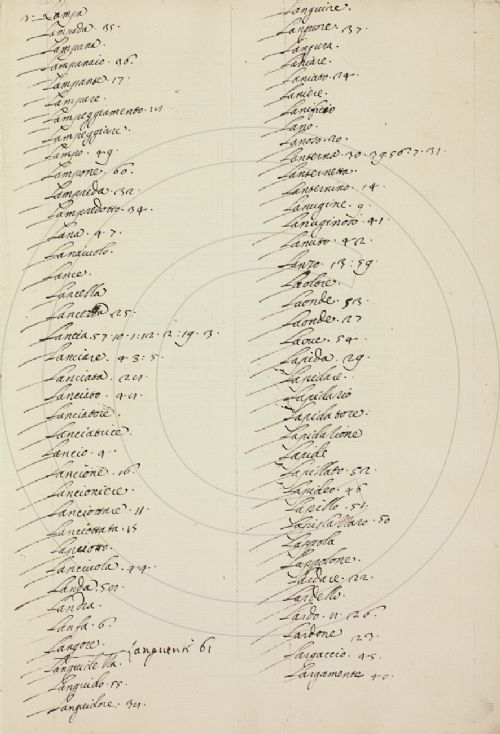 Lampa
Lampada. 35.
Lampana.
Lampanaio. 36
Lampante. 17.
Lampare.
Lampeggiamento.
Lampeggiare.
Lampo. 49.
Lampone. 60.
Lampreda.
Lampredotto. 34.
Lana. 4. 7.
Lanaiuolo.
Lance.
Lancella
25.
Lancia. 57. 10. 1: 12. 2: 19. 13.
Lanciare. 4. 3. 5.
Lanciata.
Lanciato.
Lanciatore.
Lanciatrice.
Lancio. 4.
Lancione. 16.
Lancioniere.
Lanciottare. 11.
Lanciottata. 15
Lanciotto.
Lanciuola. 44.
Landa.
Landra.
Lanfa. 6.
Langore.
Languente 61
Languidella.
Languido. 55.
Languidore.
Languire.
Languore. 37.
Langura.
Laniare.
Laniato. 24.
Laniere.
Lanificio
Lano.
Lanoso. 20.
Lanterna. 30. 39. 56. 7. 31.
Lanternetta
Lanternino. 14.
Lanugine. 9.
Lanuginoso. 41.
Lanuto. 42.
Lanzo. 13: 59.
Laolore.
Laonde. 53.
Laonde. 27
Laove. 54.
Lapida. 29.
Lapidare.
Lapidario
Lapidatore:
Lapidazione
Lapide
Lapillato. 52.
Lapideo. 46
Lapillo. 51.
50
Lappola
Lappolone.
Lardare. 22.
Lardello.
Lardo. 11. 26.
Lardone 23.
Largaccio. 45.
Largamente 40.